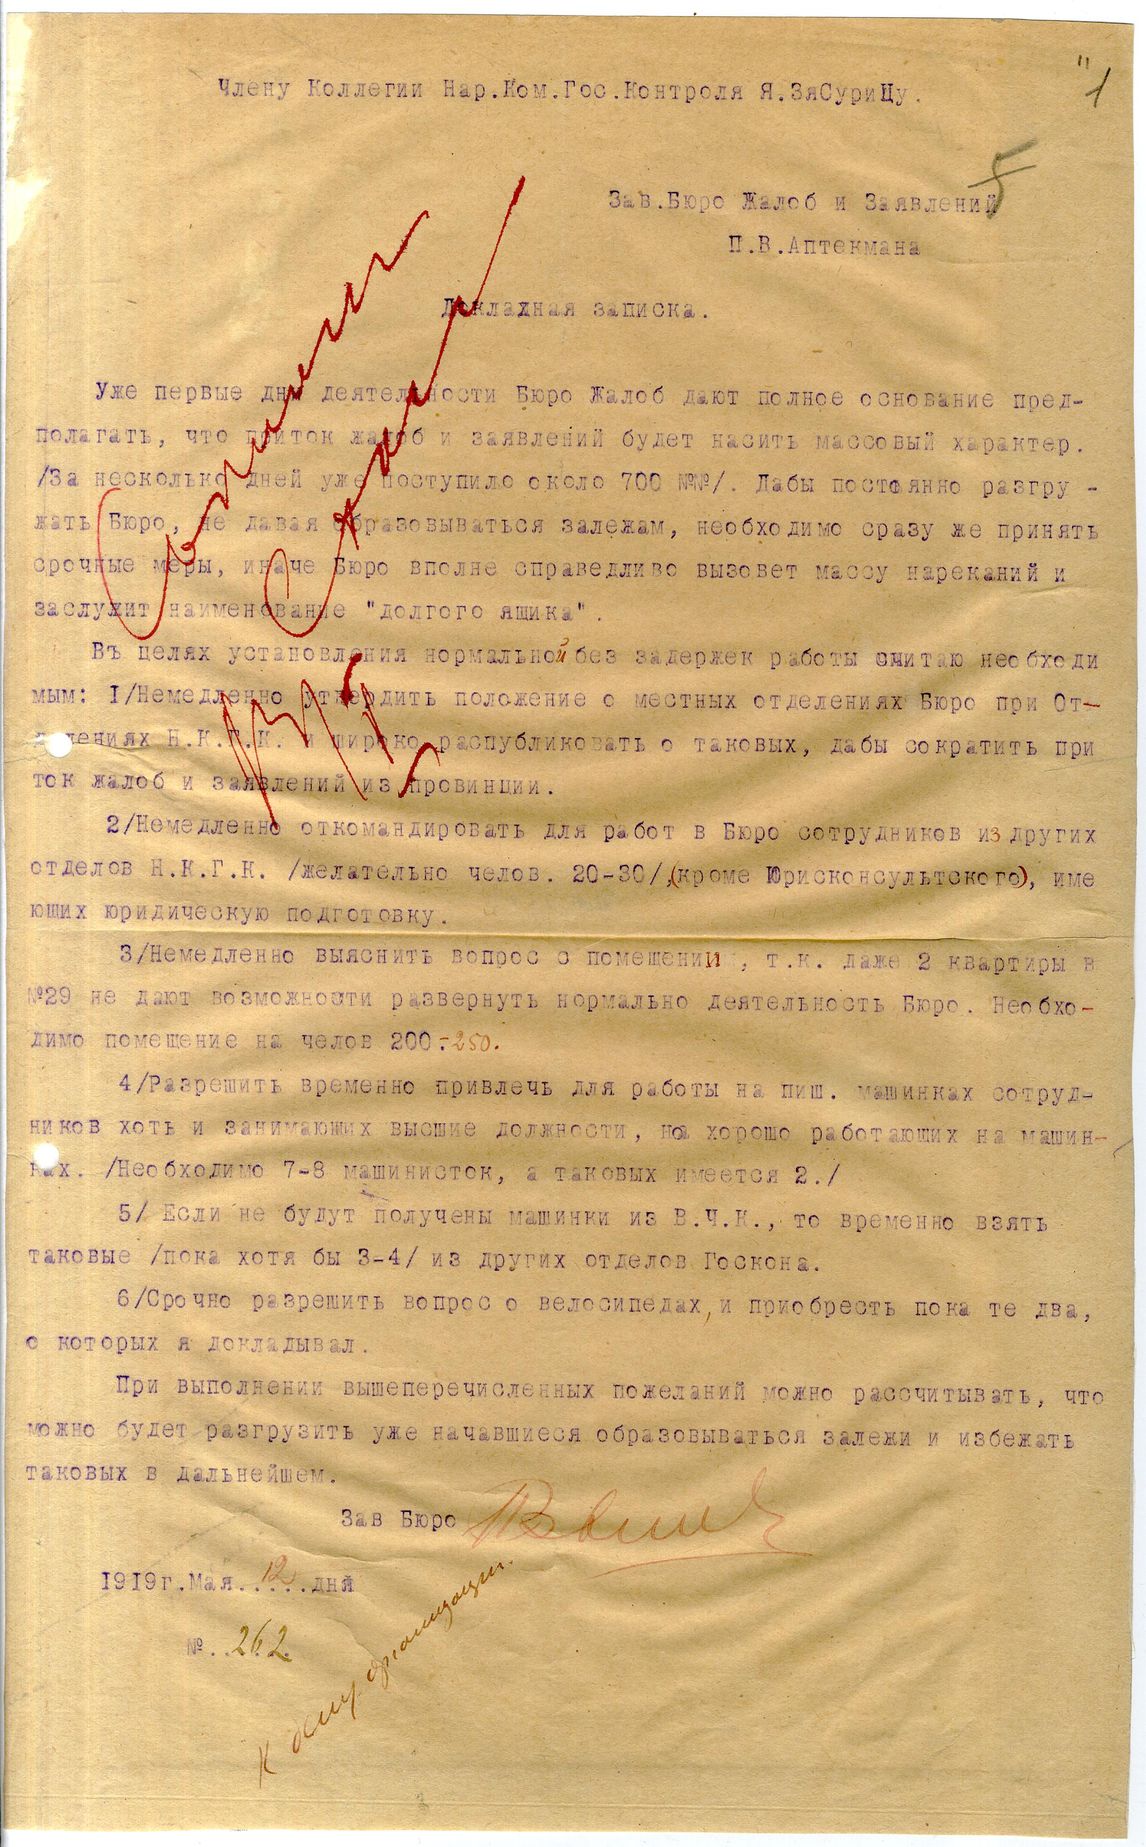 "1
Члену Коллегии Нар.Ком.Гос.Контроля Я.ЗяСуриЦу.
5
Зав.Бюро Жалоб и Заявлений
П.В.Аптекмана
Докладная записка.
Уже первые дни деятельности Бюро Жалоб дают полное основание пред-
полагать, что приток жалоб и заявлений будет насить массовый характер.
/За несколько дней уже поступило около 700 №№/. Дабы постоянно разгру -
жать Бюро, не давая образовываться залежам, необходимо сразу же принять
срочные меры, иначе Бюро вполне справедливо вызовет массу нареканий и
заслужит наименование "долгого ящика".
Въ целях установления нормальной без задержек работы считаю необходи
мым: I/Немедленно утвердить положение о местных отделениях Бюро при От-
делениях Н.К.Г.К. и широко распубликовать о таковых, дабы сократить при
ток жалоб и заявлений из провинции.
2/Немедленно откомандировать для работ в Бюро сотрудников из других
отделов Н.К.Г.К. /желательно челов. 20-30/,(кроме Юрисконсультского), име
ющих юридическую подготовку.
3/Немедленно выяснить вопрос о помещении, т.к. даже 2 квартиры в
№29 не дают возможности развернуть нормально деятельность Бюро. Необхо-
димо помещение на челов 200.-250.
4/Разрешить временно привлечь для работы на пиш. машинках сотруд-
ников хоть и занимающих высшие должности, но хорошо работающих на машин-
ках. /Необходимо 7-8 машинисток, а таковых имеется 2./
5/ Если не будут получены машинки из В.Ч.К., то временно взять
таковые /пока хотя бы 3-4/ из других отделов Госкона.
6/Срочно разрешить вопрос о велосипедах, и приобресть пока те два,
о которых я докладывал.
При выполнении вышеперечисленных пожеланий можно рассчитывать, что
можно будет разгрузить уже начавшиеся образовываться залежи и избежать
таковых в дальнейшем.
Зав Бюро
1919г.Мая..12...дня
№..262.
к